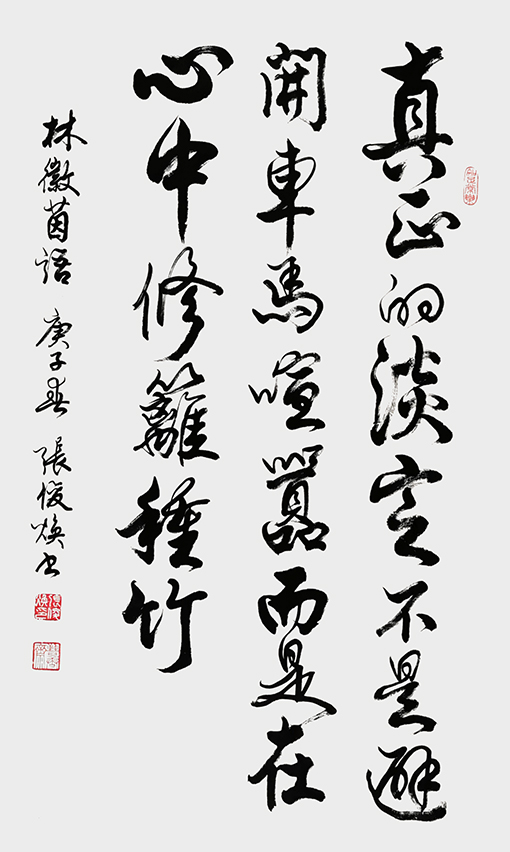 真正的淡定不是避
開車馬喧囂而是在
心中修籬種竹
林徽茵語 庚子春 張俊煥书